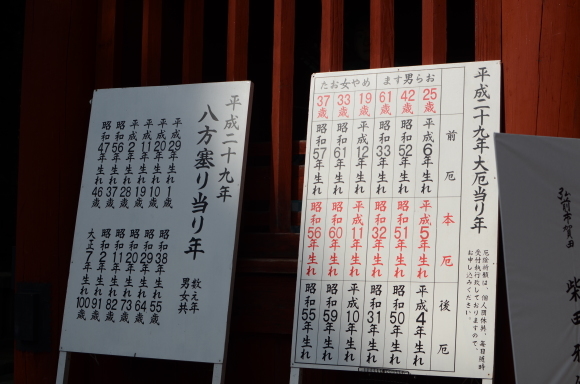 平成二十九年
八方塞り当り年
平成29年生れ 1歳
平成20年生れ 10歳
平成11年生れ 19歳
平成2年生れ 28歳
昭和56年生れ 37歳
昭和47年生れ 46歳
数え年
男女共
昭和38年生れ 55歳
昭和29年生れ 64歳
昭和20年生れ 73歳
昭和11年生れ 82歳
昭和2年生れ 91歳
大正7年生れ 100歳
平成二十九年 大厄当り年
厄除祈願は、個人団体共、毎日随時
受付執行致しておりますので、
お申し込みください。
前厄 本厄 後厄
ます男らお
25歳 平成6年生れ 平成5年生れ 平成4年生れ
42歳 昭和52年生れ 昭和51年生れ 昭和50年生れ
61歳 昭和33年生れ 昭和32年生れ 昭和31年生れ
たお女やめ
19歳 平成12年生れ 平成11年生れ 平成10年生れ
33歳 昭和61年生れ 昭和60年生れ 昭和59年生れ
37歳 昭和57年生れ 昭和56年生れ 昭和55年生れ
弘前市賀田
柴田